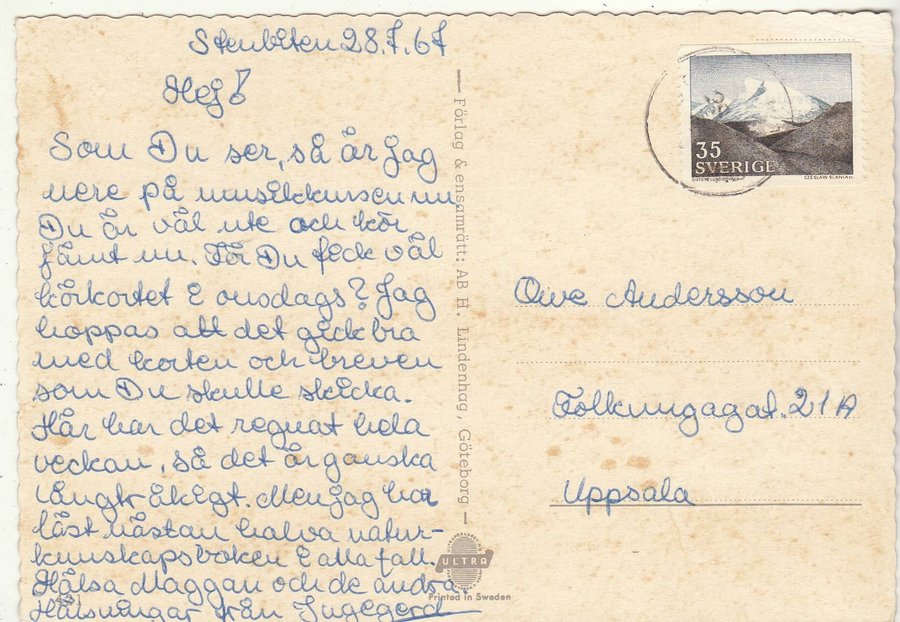 Stenbiten 28.7.67
Hej!
Som Du ser, så är jag
nere på musikkursen nu.
Du är väl ute och kör
jämt nu. För Du fick väl
körkortet i onsdags? Jag
hoppas att det gick bra
med korten och breven
som Du skulle skicka.
Här har det regnat hela
veckan, så det är ganska
långtråkigt. Men jag har
läst nästan halva natur-
kunskapsboken i alla fall.
Hälsa Maggan och de andra.
Hälsningar från Ingegerd
— Förlag & ensamrätt: AB H. Lindenhag, Göteborg —
ULTRA
Printed in Sweden
35
SVERIGE
CZESLAW SLANIA SC
Owe Andersson
Folkungagat. 21A
Uppsala